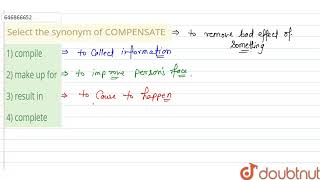 646866652
Select the synonym of COMPENSATE ⇒ to remove bad effect of
something
1) compile ⇒ to collect information
2) make up for ⇒ to improve person's face.
3) result in ⇒ to cause to happen
4) complete
doubtnut